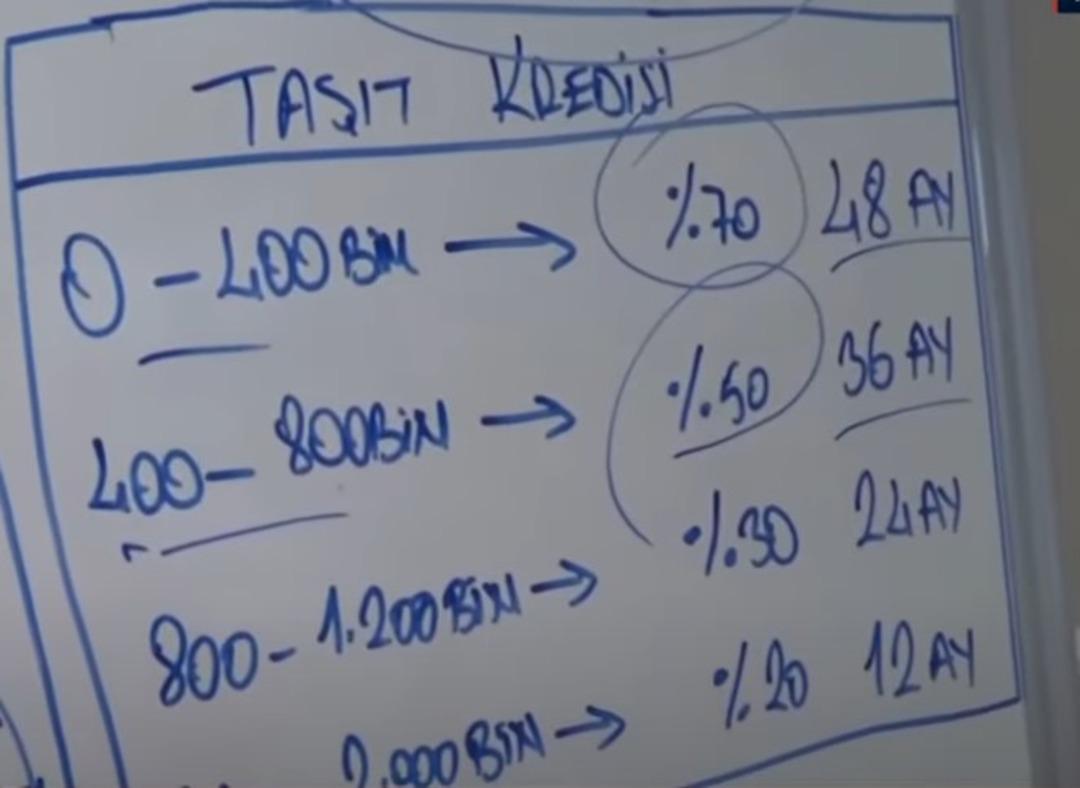 TAŞIT KREDİSİ
0 - 400 BİN → %70 48 AY
400 - 800 BİN → %50 36 AY
800 - 1.200 BİN → %30 24 AY
2.000 BİN → %20 12 AY